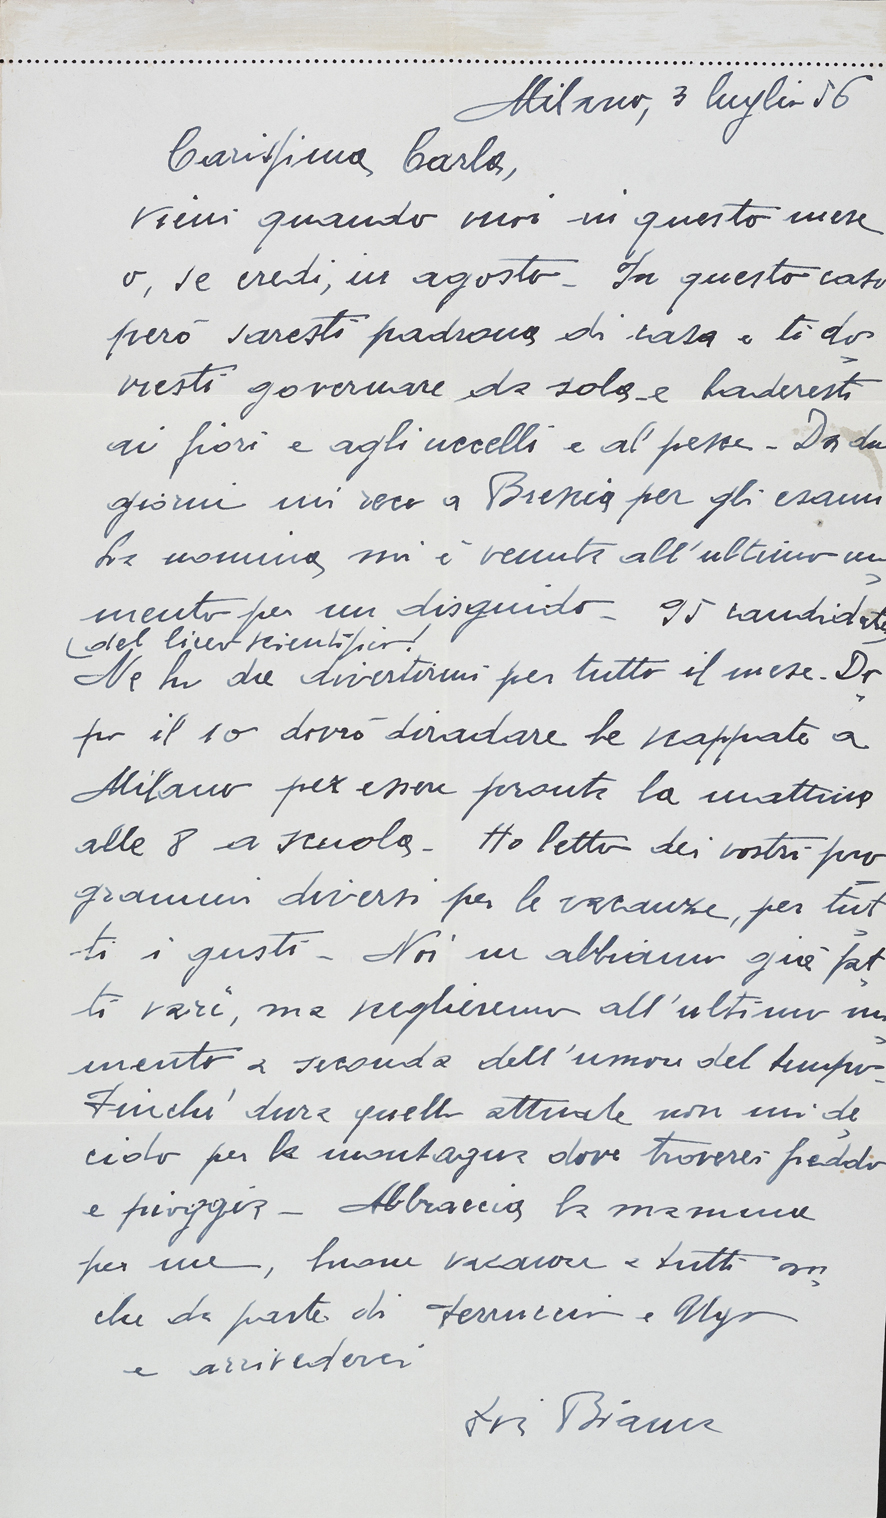 Milano, 3 luglio 56
Carissima Carla,
vieni quando vuoi in questo mese
o, se credi, in agosto - In questo caso
però saresti padrona di casa e ti do-
vresti governare da sola e baderesti
ai fiori e agli uccelli e al pesce - Da due
giorni mi reco a Brescia per gli esami
La nomina mi è venuta all'ultimo mo-
mento per un disguido - 95 candidati
(del liceo scientifico!)
Ne ho da divertirmi per tutto il mese. Do-
po il 10 dovrò diradare le scappate a
Milano per essere pronta la mattina
alle 8 a scuola - Ho letto dei vostri pro
grammi diversi per le vacanze, per tut-
ti i gusti - Noi ne abbiamo già fat-
ti vari, ma sceglieremo all'ultimo mo-
mento a seconda dell'umore del tempo -
Finché dura quello attuale non mi de-
cido per la montagna dove troverei freddo
e pioggia - Abbraccia la mamma
per me, buone vacanze a tutti an-
che da parte di Ferruccio e Ugo
e arrivederci
tua Bianca